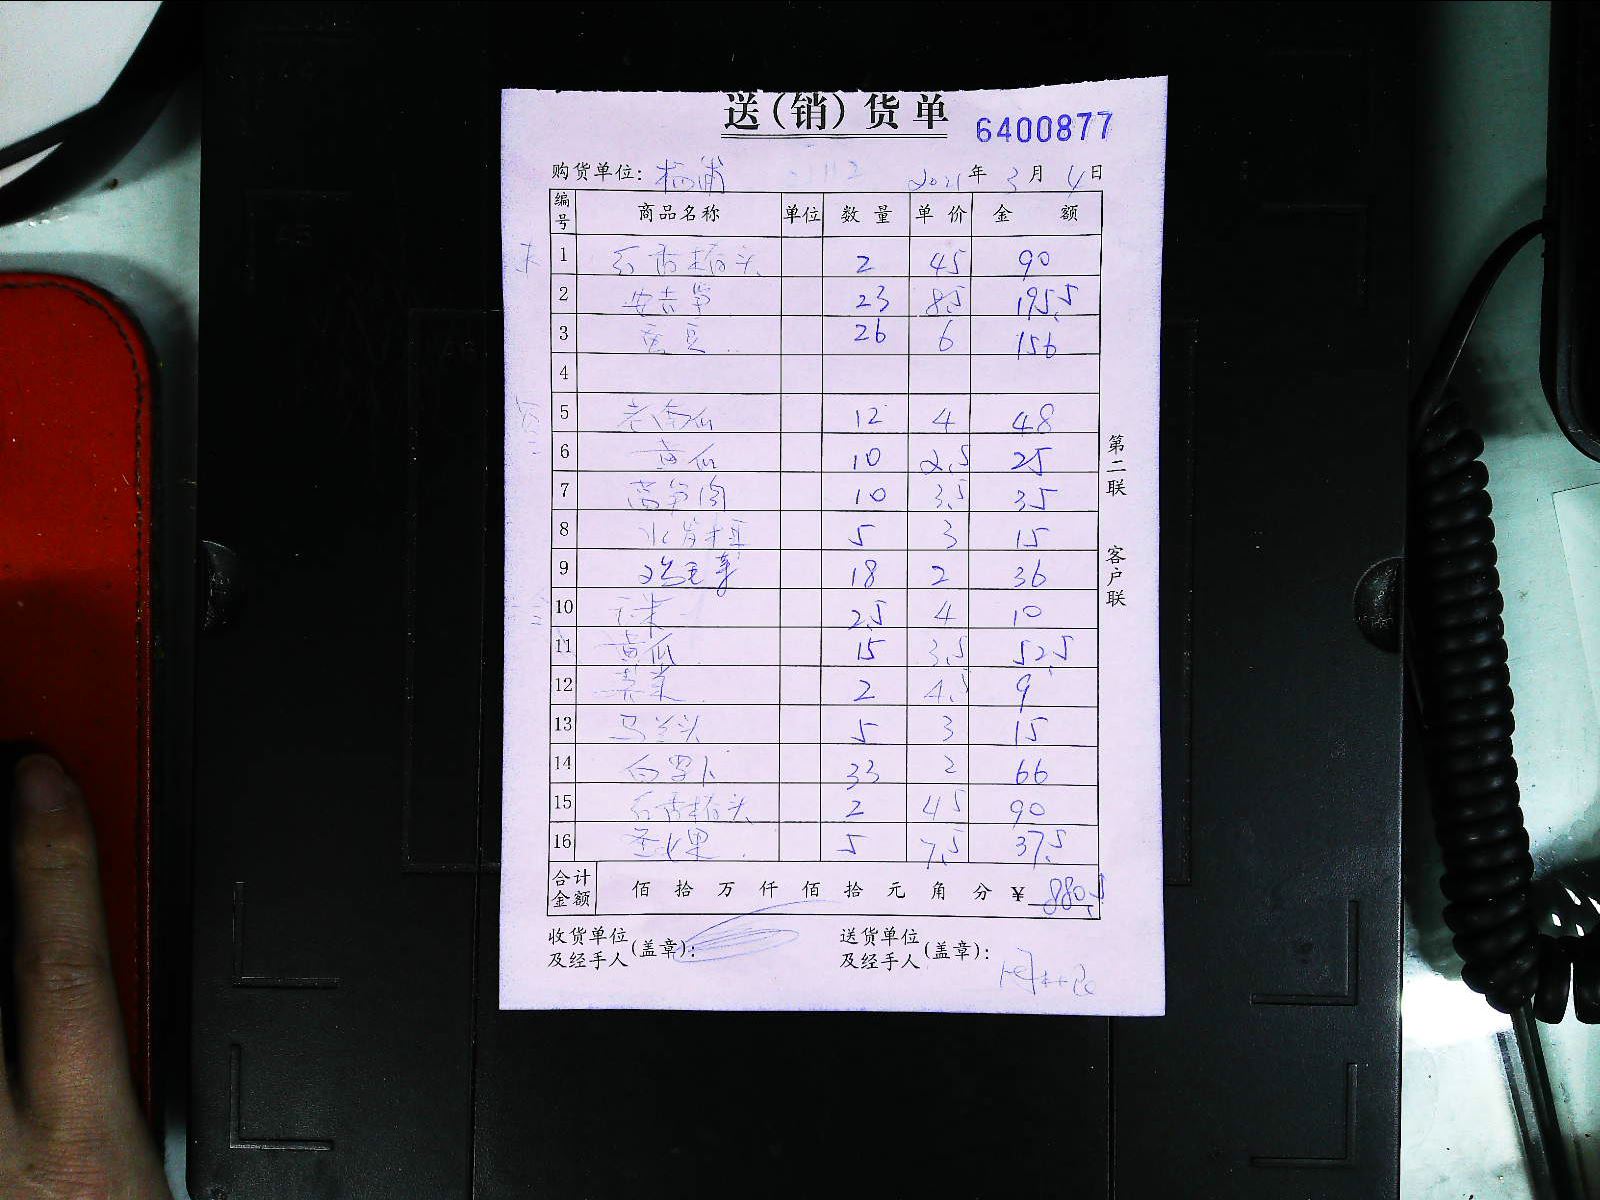 送(销)货单 6400877
购货单位: 杨浦 2021年3月4日
编号 商品名称 单位 数量 单价 金额
1 2 45 90
2 安吉笋 23 8.5 195.5
3 蚕豆 26 6 156
4
5 老南瓜 12 4 48
6 黄瓜 10 2.5 25
7 莴笋肉 10 3.5 35
8 水发 5 3 15
9 鸡毛菜 18 2 36
10 2.5 4 10
11 黄瓜 15 3.5 52.5
12 2 4.5 9
13 马兰头 5 3 15
14 白罗卜 33 2 66
15 2 45 90
16 圣女果 5 7.5 37.5
合计金额 佰拾万仟佰拾元角分 ¥ 880.5
收货单位及经手人(盖章): 送货单位及经手人(盖章):
第二联 客户联